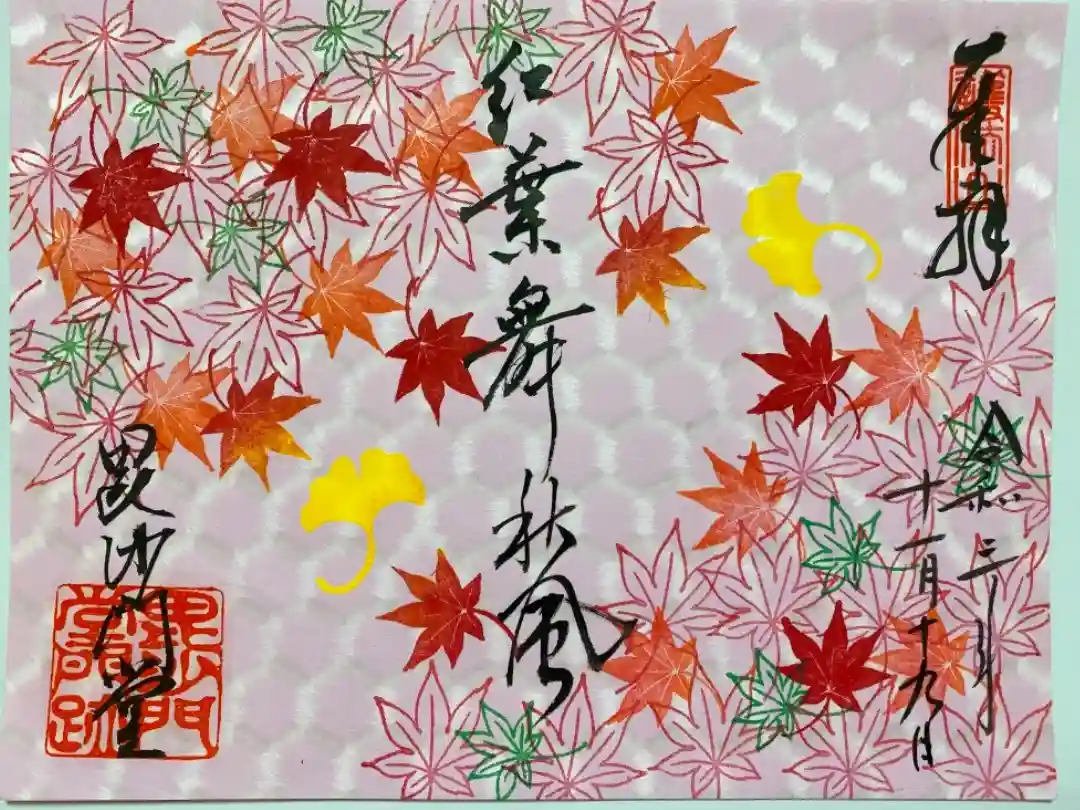 奉拝
令和三年
十一月十九日
紅葉舞秋風
毘沙門堂
毘沙門
堂門跡